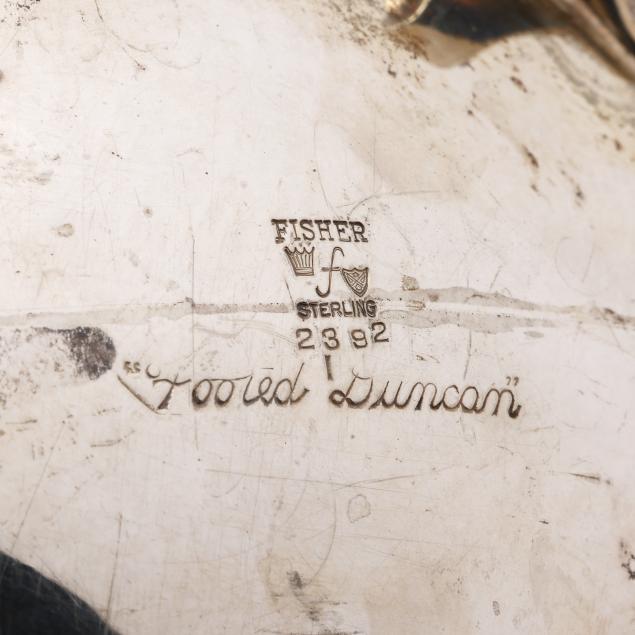 FISHER
f
STERLING
2392
1
"Footed Duncan"